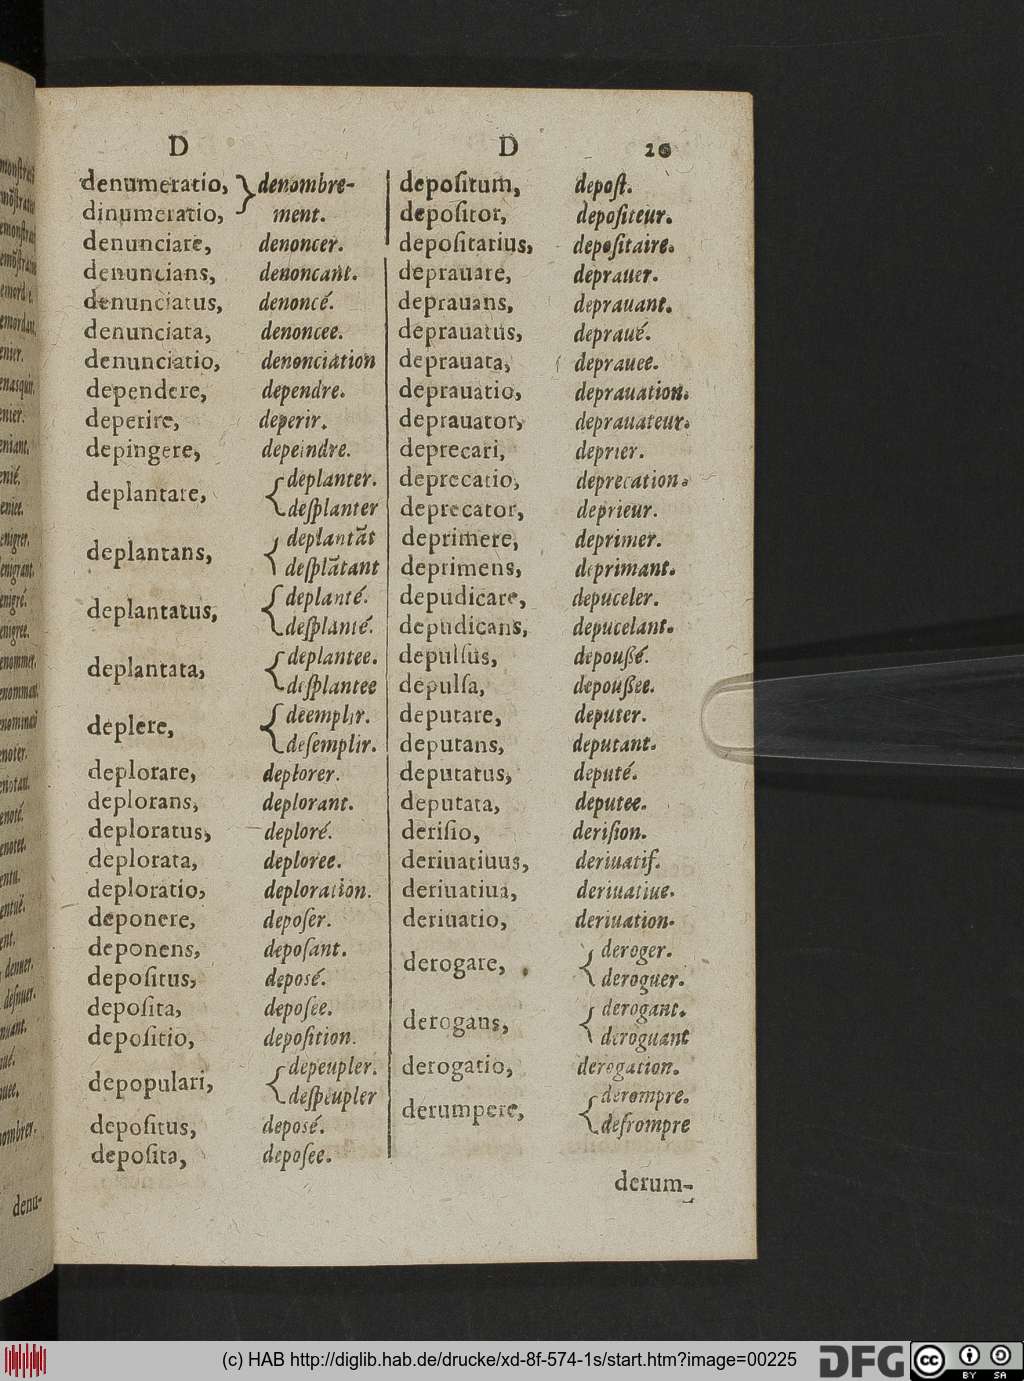 D D 20
denumeratio, } denombre-
dinumeratio, ment.
denunciare, denoncer.
denuncians, denoncant.
denunciatus, denoncé.
denunciata, denoncee.
denunciatio, denonciation
dependere, dependre.
deperire, deperir.
depingere, depeindre.
deplantare, { deplanter.
deſplanter
deplantans, { deplantãt
deſplãtant
deplantatus, { deplanté.
deſplanté.
deplantata, { deplantee.
deſplantee
deplere, { deemplir.
deſemplir.
deplorare, deplorer.
deplorans, deplorant.
deploratus, deploré.
deplorata, deploree.
deploratio, deploration.
deponere, depoſer.
deponens, depoſant.
depoſitus, deposé.
depoſita, depoſee.
depoſitio, depoſition.
depopulari, { depeupler.
deſpeupler
depoſitus, deposé.
depoſita, depoſee.
depoſitum, depoſt.
depoſitor, depoſiteur.
depoſitarius, depoſitaire.
deprauare, deprauer.
deprauans, deprauant.
deprauatus, depraué.
deprauata, deprauee.
deprauatio, deprauation.
deprauator, deprauateur.
deprecari, deprier.
deprecatio, deprecation.
deprecator, deprieur.
deprimere, deprimer.
deprimens, deprimant.
depudicare, depuceler.
depudicans, depucelant.
depulſus, depoußé.
depulſa, depoußee.
deputare, deputer.
deputans, deputant.
deputatus, deputé.
deputata, deputee.
deriſio, deriſion.
deriuatiuus, deriuatif.
deriuatiua, deriuatiue.
deriuatio, deriuation.
derogare, { deroger.
deroguer.
derogans, { derogant.
deroguant
derogatio, derogation.
derumpere, { derompre.
deſrompre
derum-
enier.
enier.
eniant.
enié.
eniee.
enigrer.
enigrant.
enigré.
enigree.
enommer.
enoter.
enoté.
enotee.
denu-
(c) HAB http://diglib.hab.de/drucke/xd-8f-574-1s/start.htm?image=00225
DFG
cc
BY SA